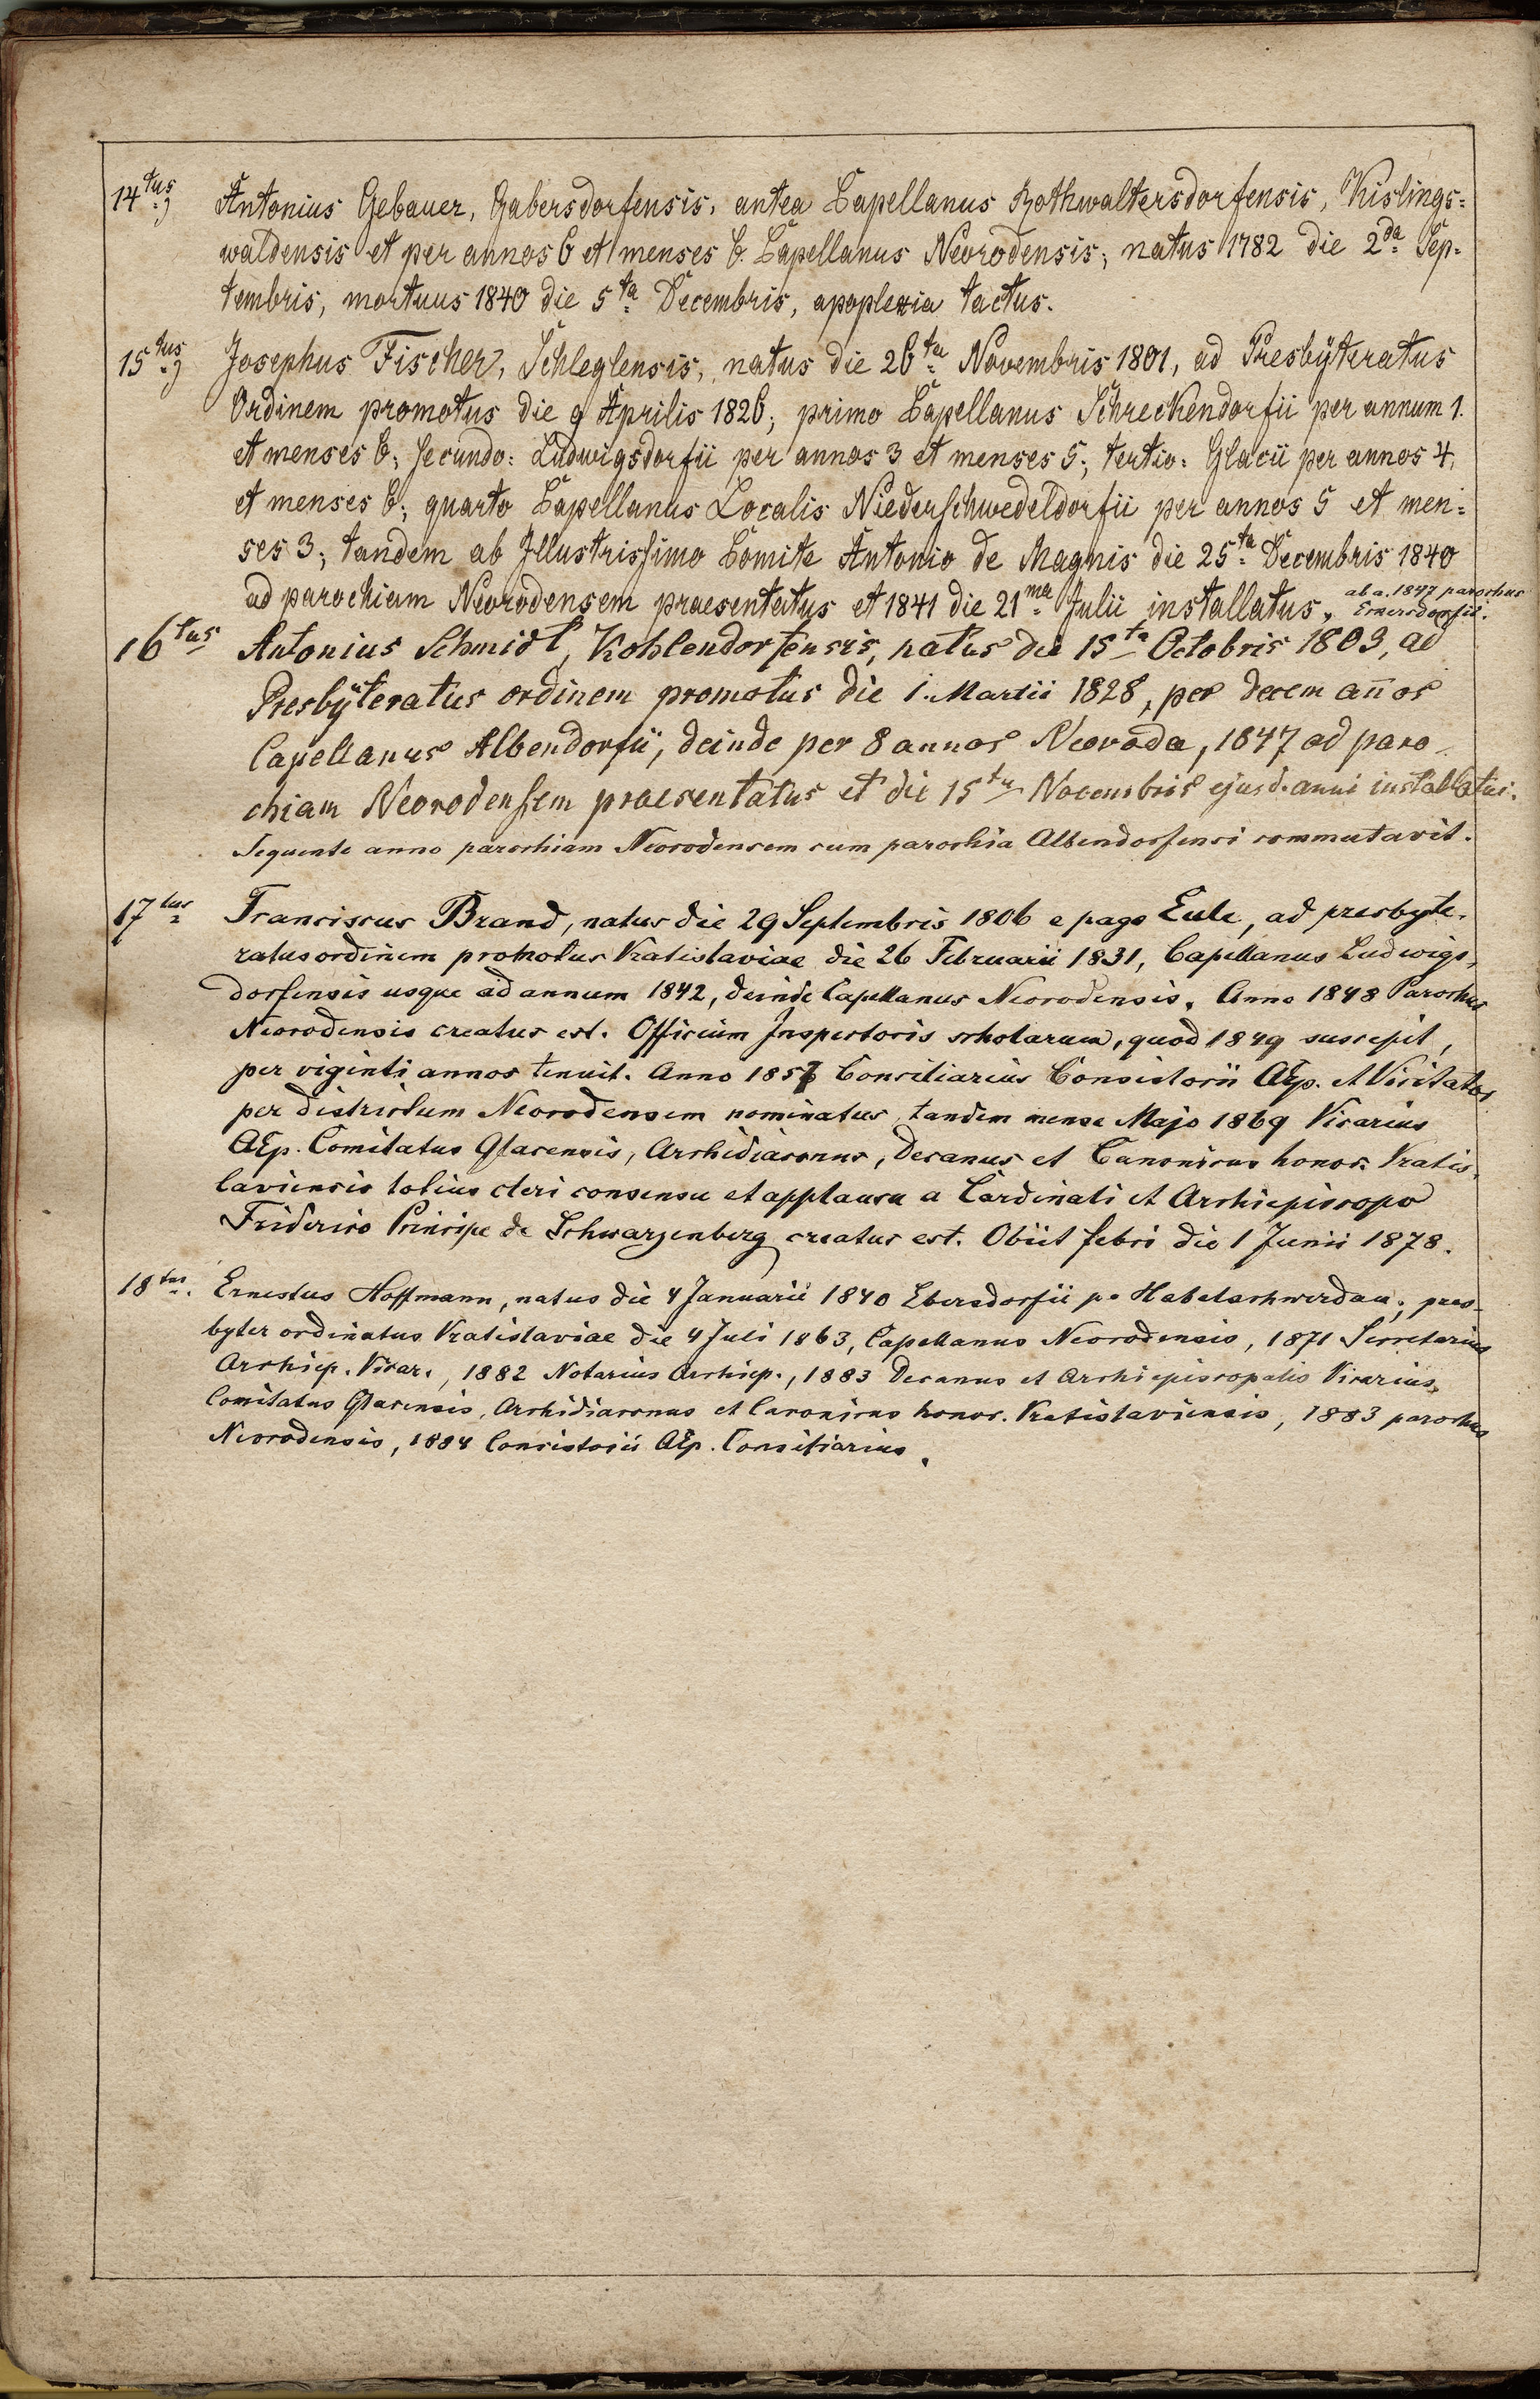 14tus, Antonius Gebauer, Gabersdorfensis, antea Capellanus Rothwaltersdorfensis, Kislings=
waldensis et per annos 6 et menses 6 Capellanus Neorodensis; natus 1782 die 2da Sep=
tembris, mortuus 1840 die 5ta Decembris, apoplexia tactus.
15tus, Josephus Fischer, Schleglensis, natus die 26ta Novembris 1801, ad Presbÿteratus
Ordinem promotus die 9 Aprilis 1826; primo Capellanus Schreckendorfii per annum 1.
et menses 6; secundo: Ludwigsdorfii per annos 3 et menses 5; tertio: Glacii per annos 4,
et menses 6; quarto Capellanus Localis Niederschwedeldorfii per annos 5 et men=
ses 3; tandem ab Illustrissimo Comite Antonio de Magnis die 25ta Decembris 1840
ad parochiam Neorodensem praesentatus et 1841 die 21ma Julii installatus, ab a. 1847 parochus
Ebersdorfii.
16tus Antonius Schmidt, Kohlendorfensis, natus die 15ta Octobris 1803, ad
Presbÿteratus ordinem promotus die 1. Martii 1828, per decem an̅os
Capellanus Albendorfii, deinde per 8 annos Neoroda, 1847 ad paro-
chiam Neorodensem praesentatus et die 15ta Novembris ejusd. anni installatus.
Sequente anno parochiam Neorodensem cum parochia Albendorfensi commutavit.
17tus Franciscus Brand, natus die 29 Septembris 1806 e pago Eule, ad presbyte-
ratus ordinem promotus Vratislaviae die 26 Februarii 1831, Capellanus Ludwigs-
dorfensis usque ad annum 1842, deinde Capellanus Neorodensis. Anno 1848 Parochus
Neorodensis creatus est. Officium Inspectoris scholarum, quod 1849 suscepit,
per viginti annos tenuit. Anno 1857 Consiliarius Consistorii AEp. et Visitator
per districtum Neorodensem nominatus, tandem mense Majo 1869 Vicarius
AEp. Comitatus Glacensis, Archidiaconus, Decanus et Canonicus honor. Vratis-
laviensis totius cleri consensu et applausu a Cardinali et Archiepiscopo
Friderico Principe de Schwarzenberg creatus est. Obiit febri die 1 Junii 1878.
18tus. Ernestus Hoffmann, natus die 4 Januarii 1840 Ebersdorfii pr Habelschwerdau; pres-
byter ordinatus Vratislaviae die 4 Juli 1863, Capellanus Neorodensis, 1871 Secretarius
Archiep. Vicar., 1882 Notarius Archiep., 1883 Decanus et Archiepiscopalis Vicarius,
Comitatus Glacensis, Archidiaconus et Canonicus honor. Vratislaviensis, 1883 parochus
Neorodensis, 1884 Consistorii AEp. Consiliarius.